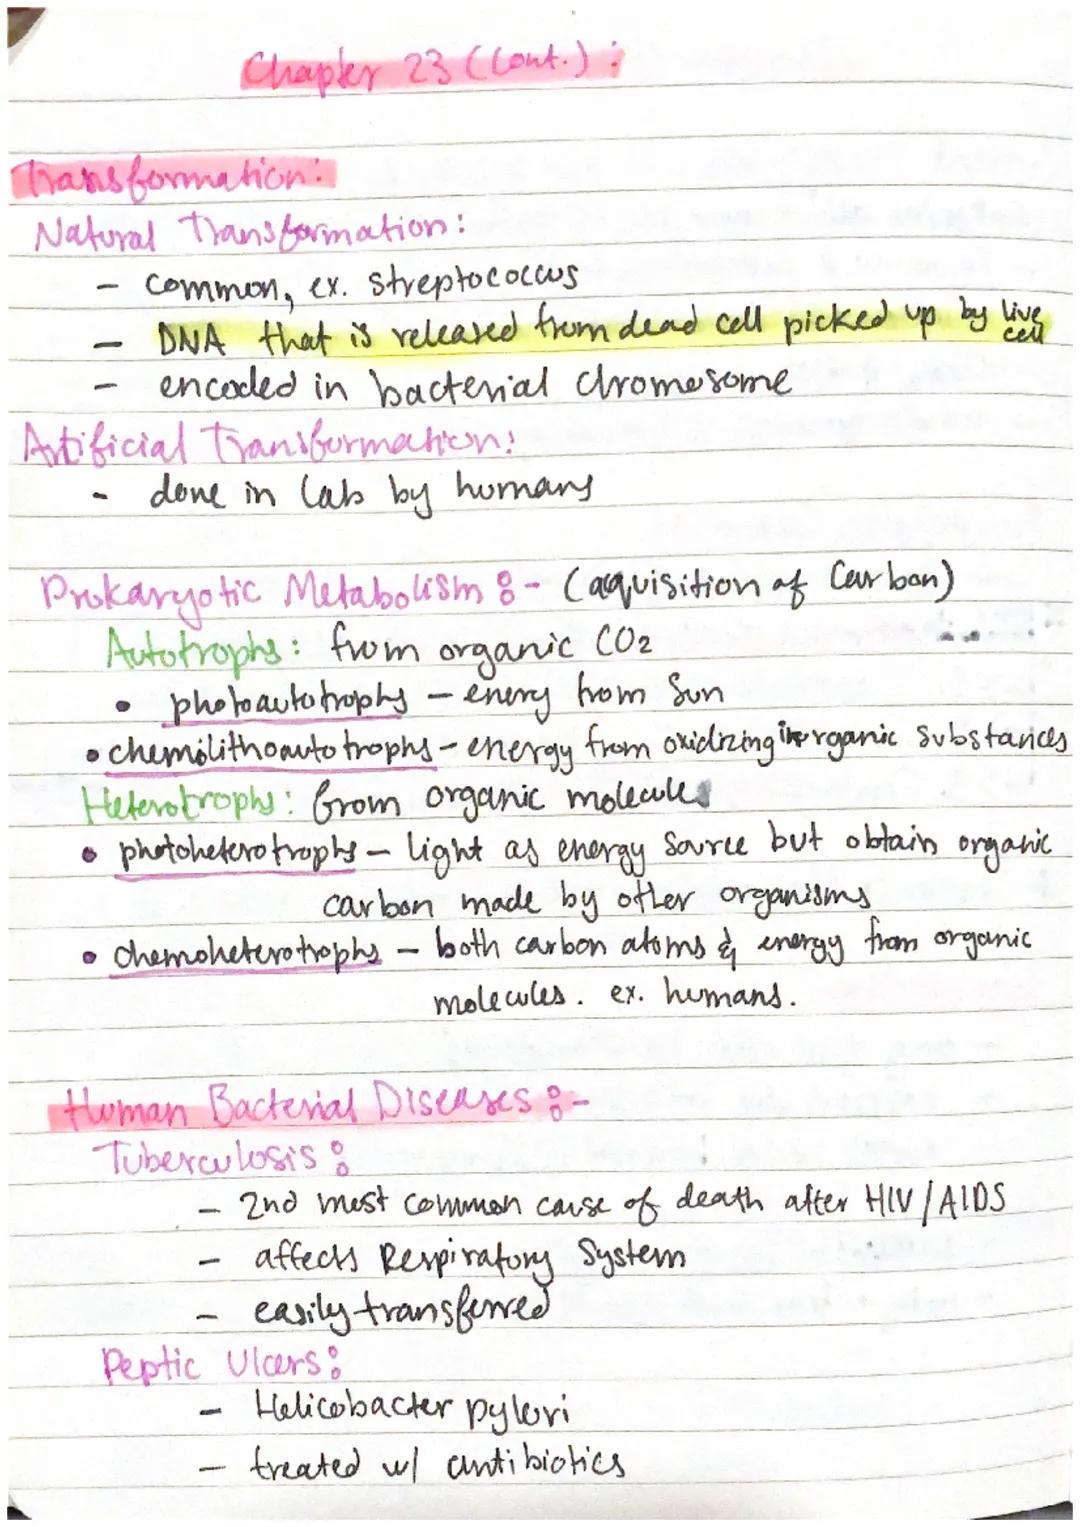 Chapter 23 (Cont.) :
Transformation:
Natural Transformation:
- Common, ex. Streptococcus
- DNA that is released from dead cell picked up by live cell
- encoded in bacterial chromosome
Artificial Transformation:
- done in lab by humans
Prokaryotic Metabolism :- (aquisition of Carbon)
Autotrophs: from organic CO2
• photoautotrophs - energy from Sun
• chemolithoautotrophs - energy from oxidizing inorganic substances
Heterotrophs: from organic molecules
• photoheterotrophs - light as energy source but obtain organic
carbon made by other organisms
• chemoheterotrophs - both carbon atoms & energy from organic
molecules. ex. humans.
Human Bacterial Diseases :-
Tuberculosis :
- 2nd most common cause of death after HIV/AIDS
- affects Respiratory System
- easily transferred
Peptic Ulcers:
- Helicobacter pylori
- treated w/ antibiotics